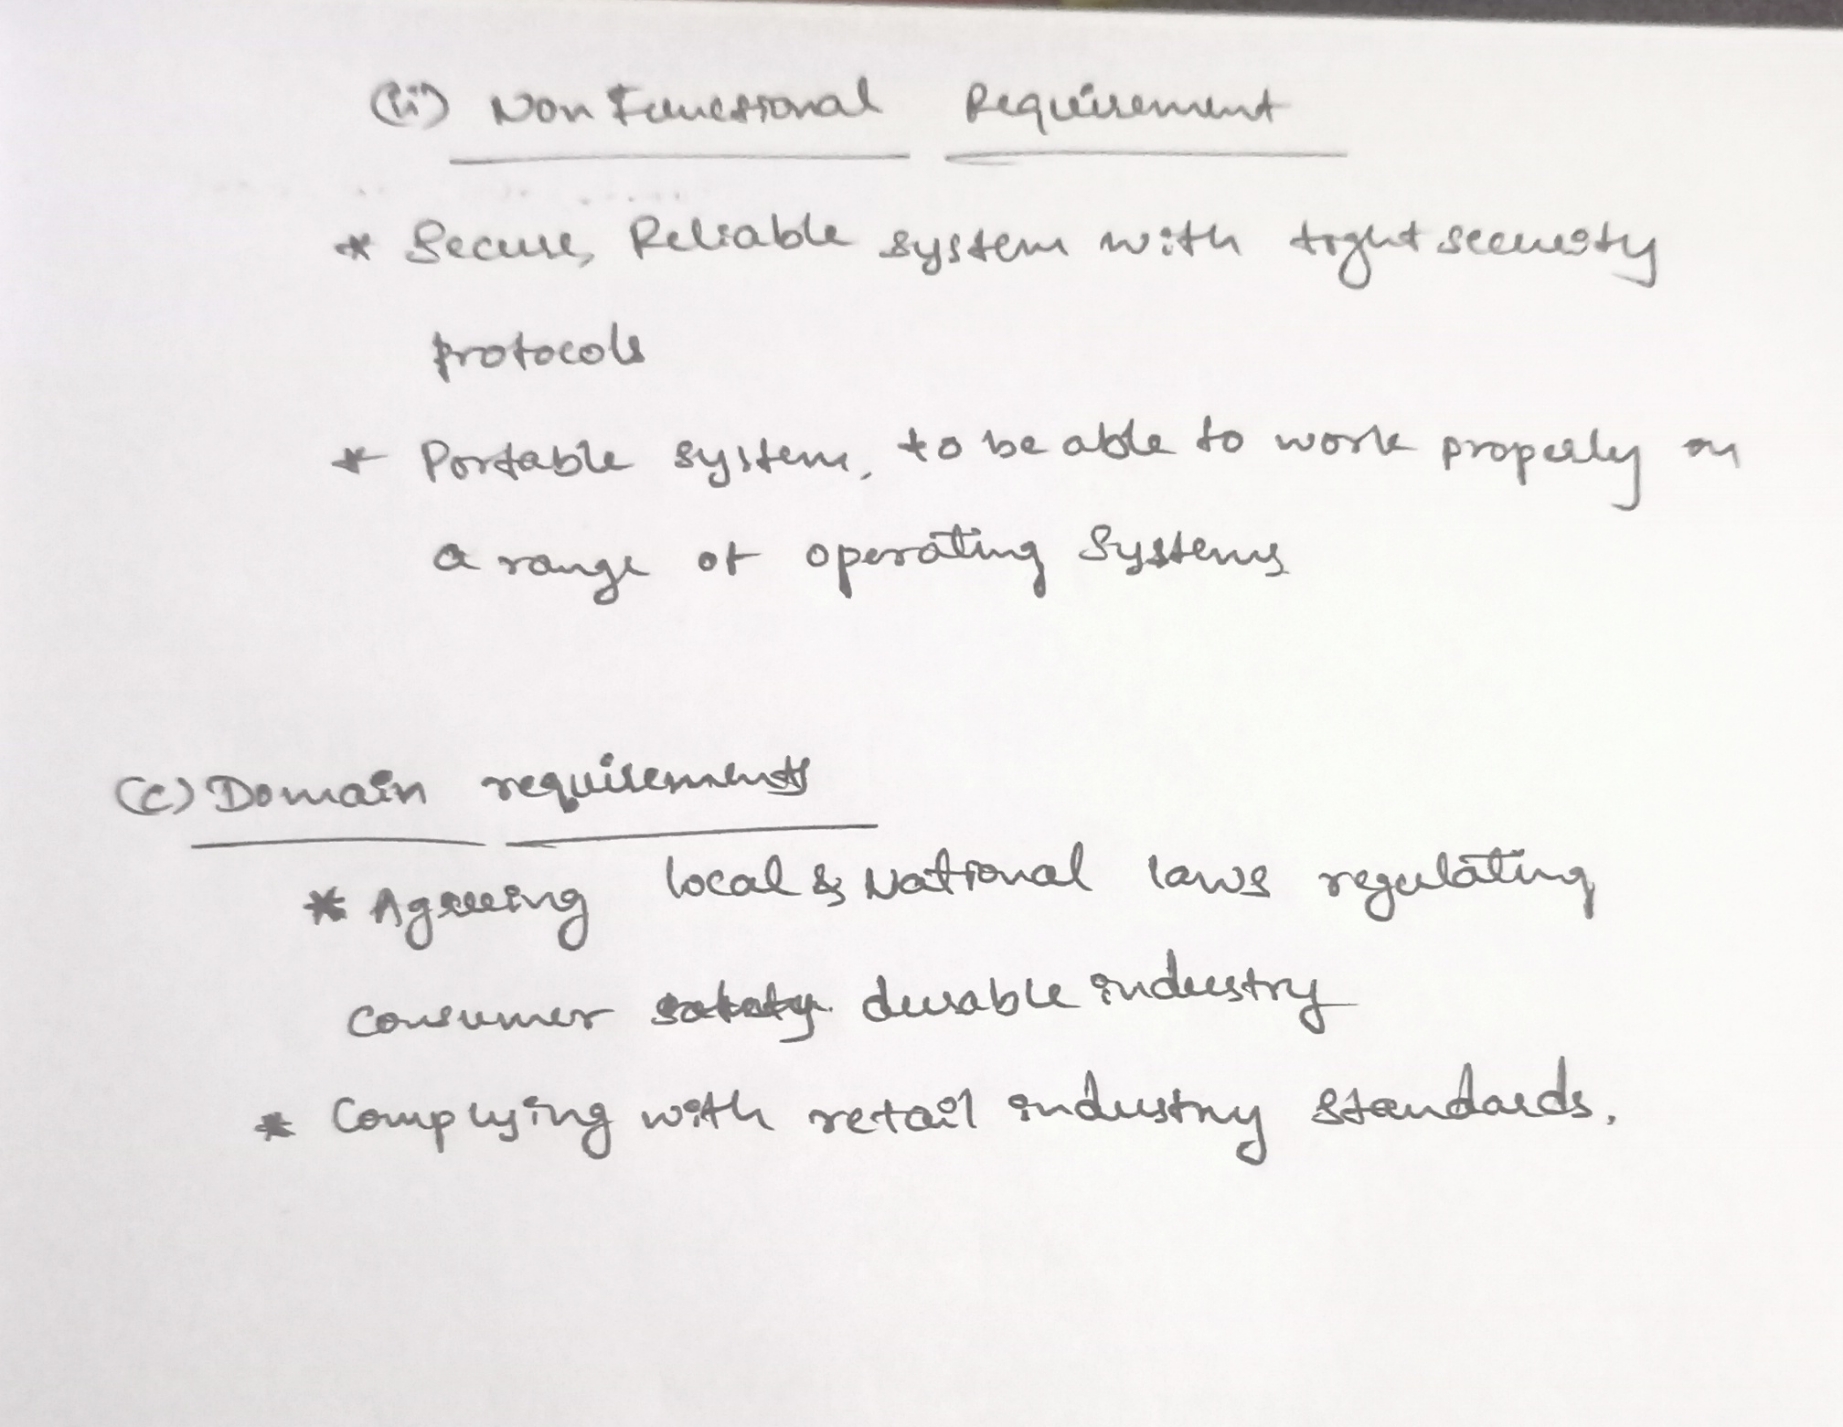 (ii) Non Functional Requirement
* Secure, Reliable system with tight security
protocols
* Portable system, to be able to work properly on
a range of operating Systems
(c) Domain requirements
* Agreeing local & National laws regulating
consumer durable industry
* Complying with retail industry standards.